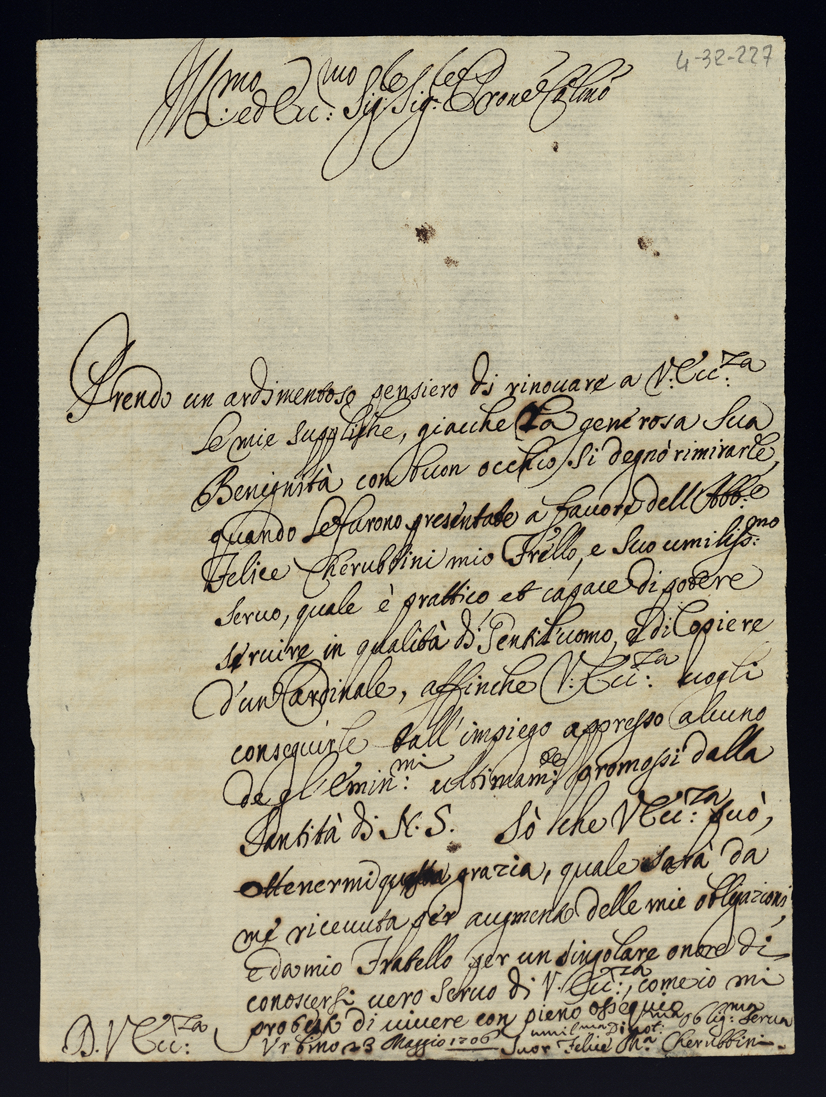 4-32-227
Ill:mo ed Ecc:mo Sig:re Sig:re e Prone Colmo
Prendo un ardimentoso pensiero di rinouare a V: Ecc:za
le mie suppliche, giacche la generosa sua
Benignità con buon occhio si degnò rimirarle,
quando le furono presentate a favore dell'Abb:e
Felice Cherubbini mio Frello, e suo umiliss:mo
seruo, quale è prattico et capace di potere
seruire in qualità di Gentil'uomo, e di Copiere
d'un Cardinale, affinche V: Ecc:za uogli
conseguirle tall'impiego appresso alcuno
de gl'Emin:mi ultimam:te promossi dalla
Santità di N. S. Sò che V Ecc:za può,
ottenermi questa grazia, quale sarà da
me riceuuta per augmento delle mie obligazioni,
e da mio Fratello per un singolare onore di
conoscersi uero seruo di V: Ecc:za, come io mi
protesto di uiuere con pieno ossequio
D. V Ecc:za
Urbino 23 Maggio 1706 umil:ma Diuot:ma Oblig:ma Serua
Suor Felice Ma Cherubbini